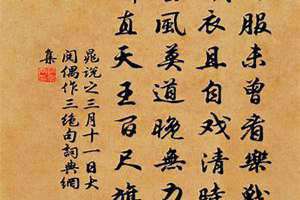 服未曾看樂戰
衣且自戲清時
風莫道晚無力
直天王百尺旗
晁說之三月十一日大
閱偶作三絕句詞典網
集